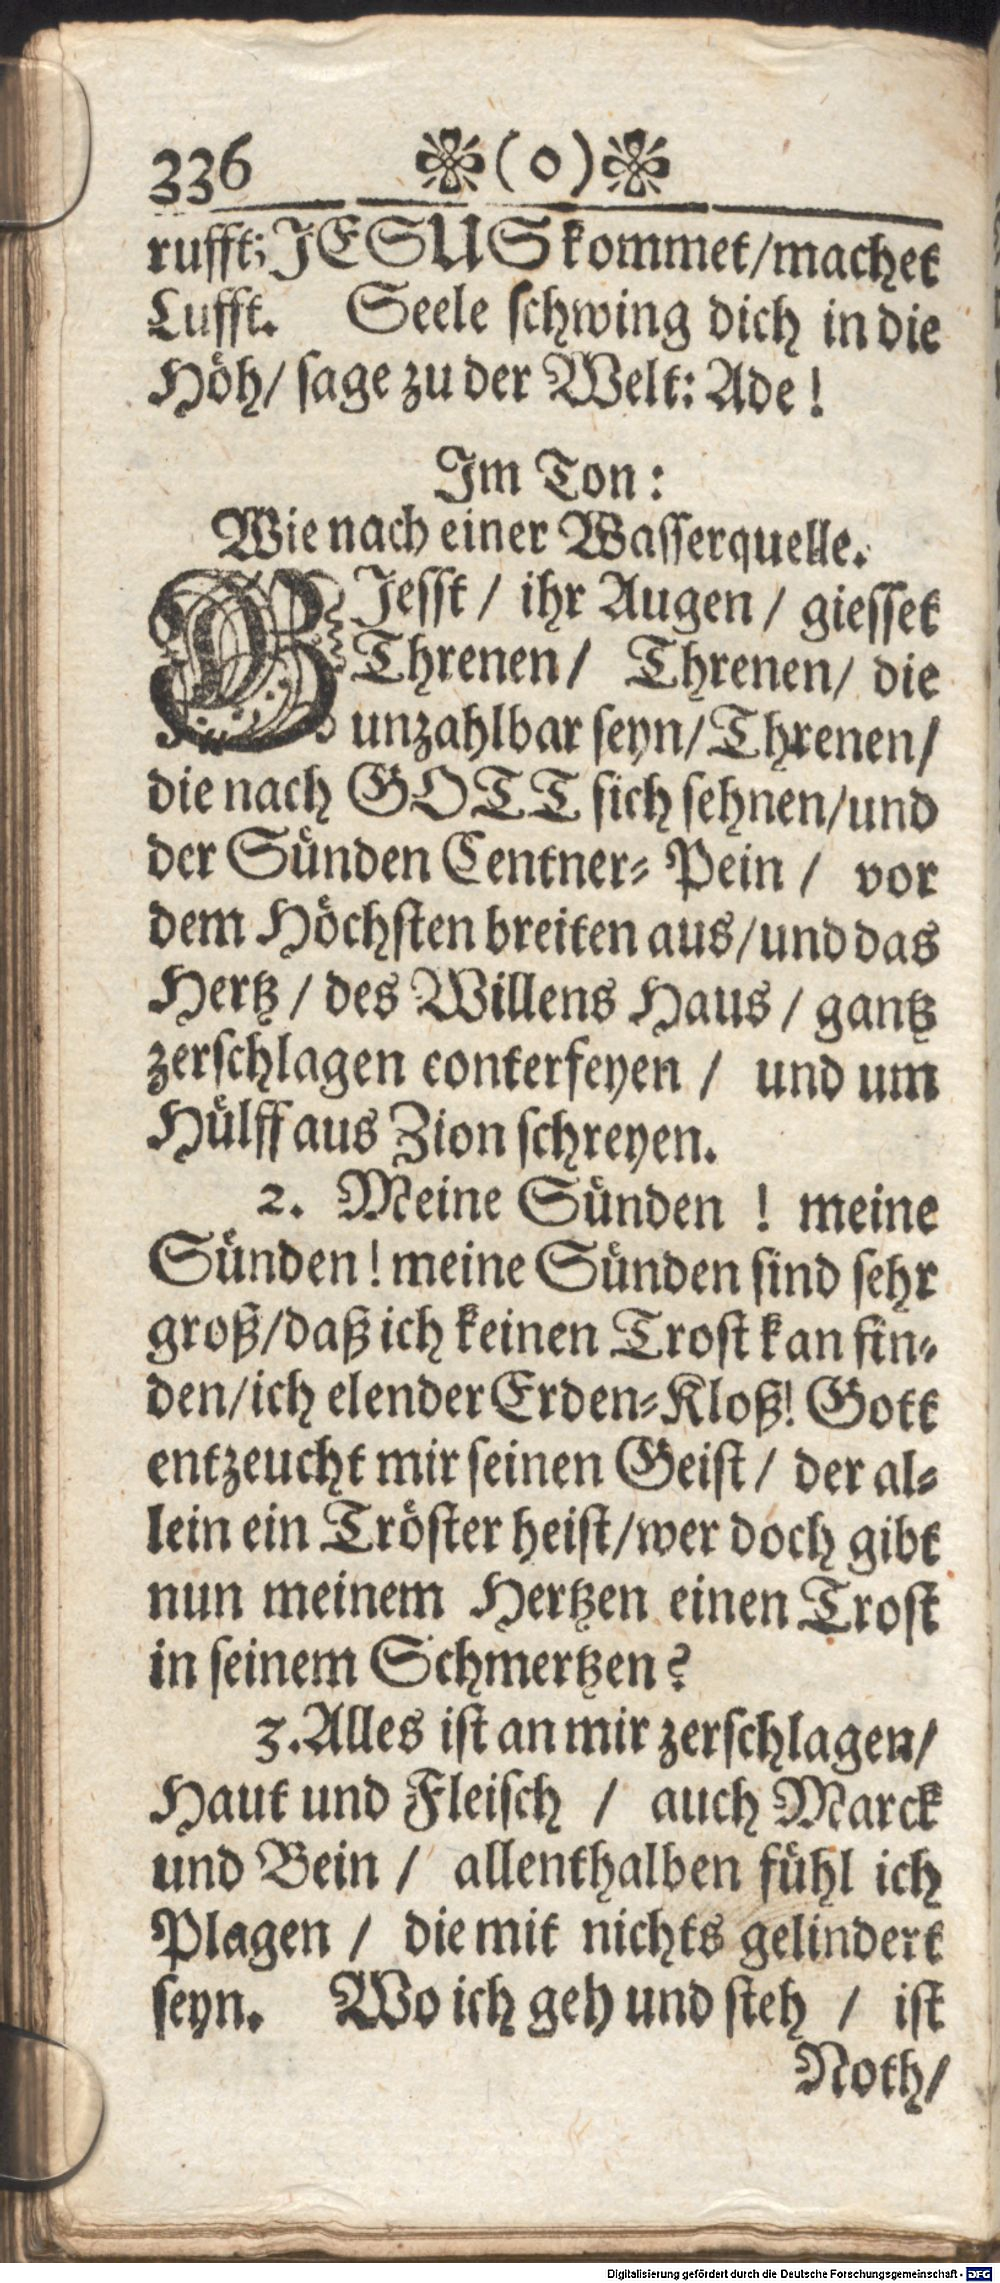 336 ❀(o)❀
rufft; JESUS kommet/machet
Lufft. Seele schwing dich in die
Höh/ sage zu der Welt: Ade!
Im Ton:
Wie nach einer Wasserquelle.
GJesst / ihr Augen / giesset
Threnen/ Threnen/ die
unzahlbar seyn/Threnen/
die nach GOTT sich sehnen/und
der Sünden Centner-Pein / vor
dem Höchsten breiten aus/und das
Hertz / des Willens Haus / gantz
zerschlagen conterfeyen / und um
Hülff aus Zion schreyen.
2. Meine Sünden ! meine
Sünden! meine Sünden sind sehr
groß/daß ich keinen Trost kan fin-
den/ich elender Erden-Kloß! Gott
entzeucht mir seinen Geist / der al-
lein ein Tröster heist/wer doch gibt
nun meinem Hertzen einen Trost
in seinem Schmertzen?
3. Alles ist an mir zerschlagen/
Haut und Fleisch / auch Marck
und Bein / allenthalben fühl ich
Plagen / die mit nichts gelindert
seyn. Wo ich geh und steh / ist
Noth/
Digitalisierung gefördert durch die Deutsche Forschungsgemeinschaft - DFG